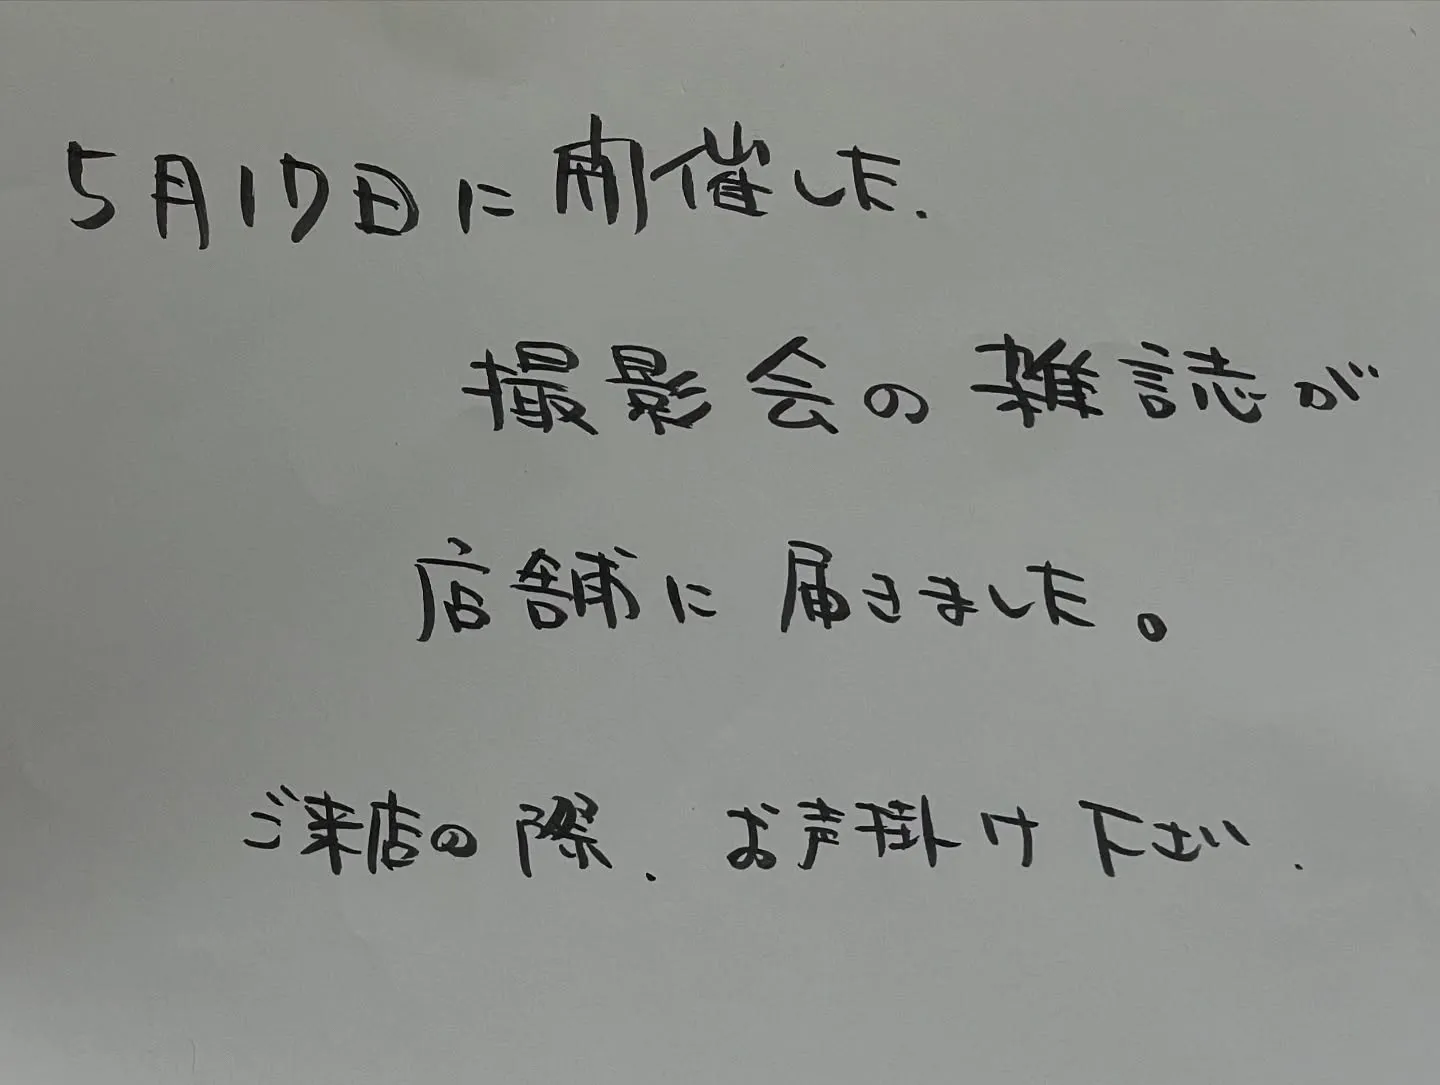 5月17日に開催した.
撮影会の雑誌が
店舗に届きました。
ご来店の際.お声掛け下さい.